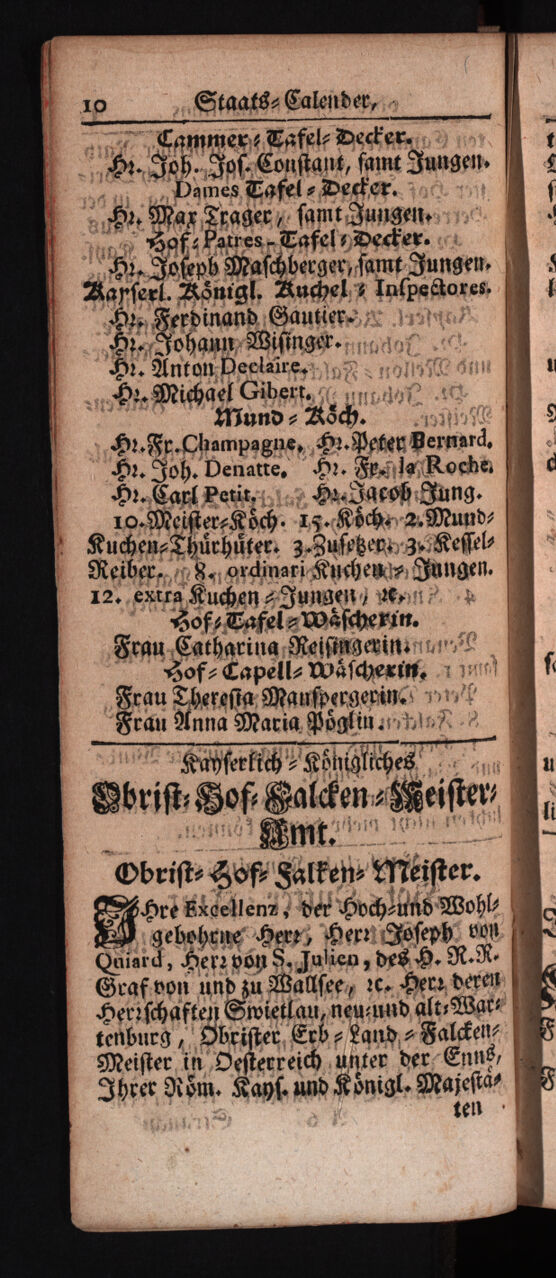 10 Staats-Calender,
Cammer-Tafel-Decker.
Hr. Joh. Jos. Constant, samt Jungen.
Dames Tafel-Decker.
Hr. Max Trager, samt Jungen.
Hof-Patres-Tafel-Decker.
Hr. Joseph Maschberger, samt Jungen.
Kayserl. Königl. Kuchel-Inspectores.
Hr. Ferdinand Gautier.
Hr. Johann Wisinger.
Hr. Anton Declaire.
Hr. Michael Gibert.
Mund-Köch.
Hr. Fr. Champagne. Hr. Peter Bernard.
Hr. Joh. Denatte. Hr. Fr. la Roche.
Hr. Carl Petit. Hr. Jacob Jung.
10. Meister-Köch. 15. Köch. 2. Mund-
Kuchen-Thürhüter. 3. Zusetzer. 3. Kessel-
Reiber. 8. ordinari Kuchen-Jungen.
12. extra Kuchen-Jungen, ꝛc.
Hof-Tafel-Wäscherin.
Frau Catharina Reisingerin.
Hof-Capell-Wäscherin.
Frau Theresia Manspergerin.
Frau Anna Maria Pöglin.
Kayserlich-Königliches
Obrist-Hof-Falcken-Meister-
Amt.
Obrist-Hof-Falken-Meister.
IHre Excellenz, der Hoch- und Wohl-
gebohrne Herr, Herr Joseph von
Quiard, Herr von S. Julien, des H. R. R.
Graf von und zu Wallsee, ꝛc. Herr deren
Herrschaften Swietlau, neu- und alt-War-
tenburg, Obrister Erb-Land-Falcken-
Meister in Oesterreich unter der Enns,
Ihrer Röm. Kays. und Königl. Majestä-
ten